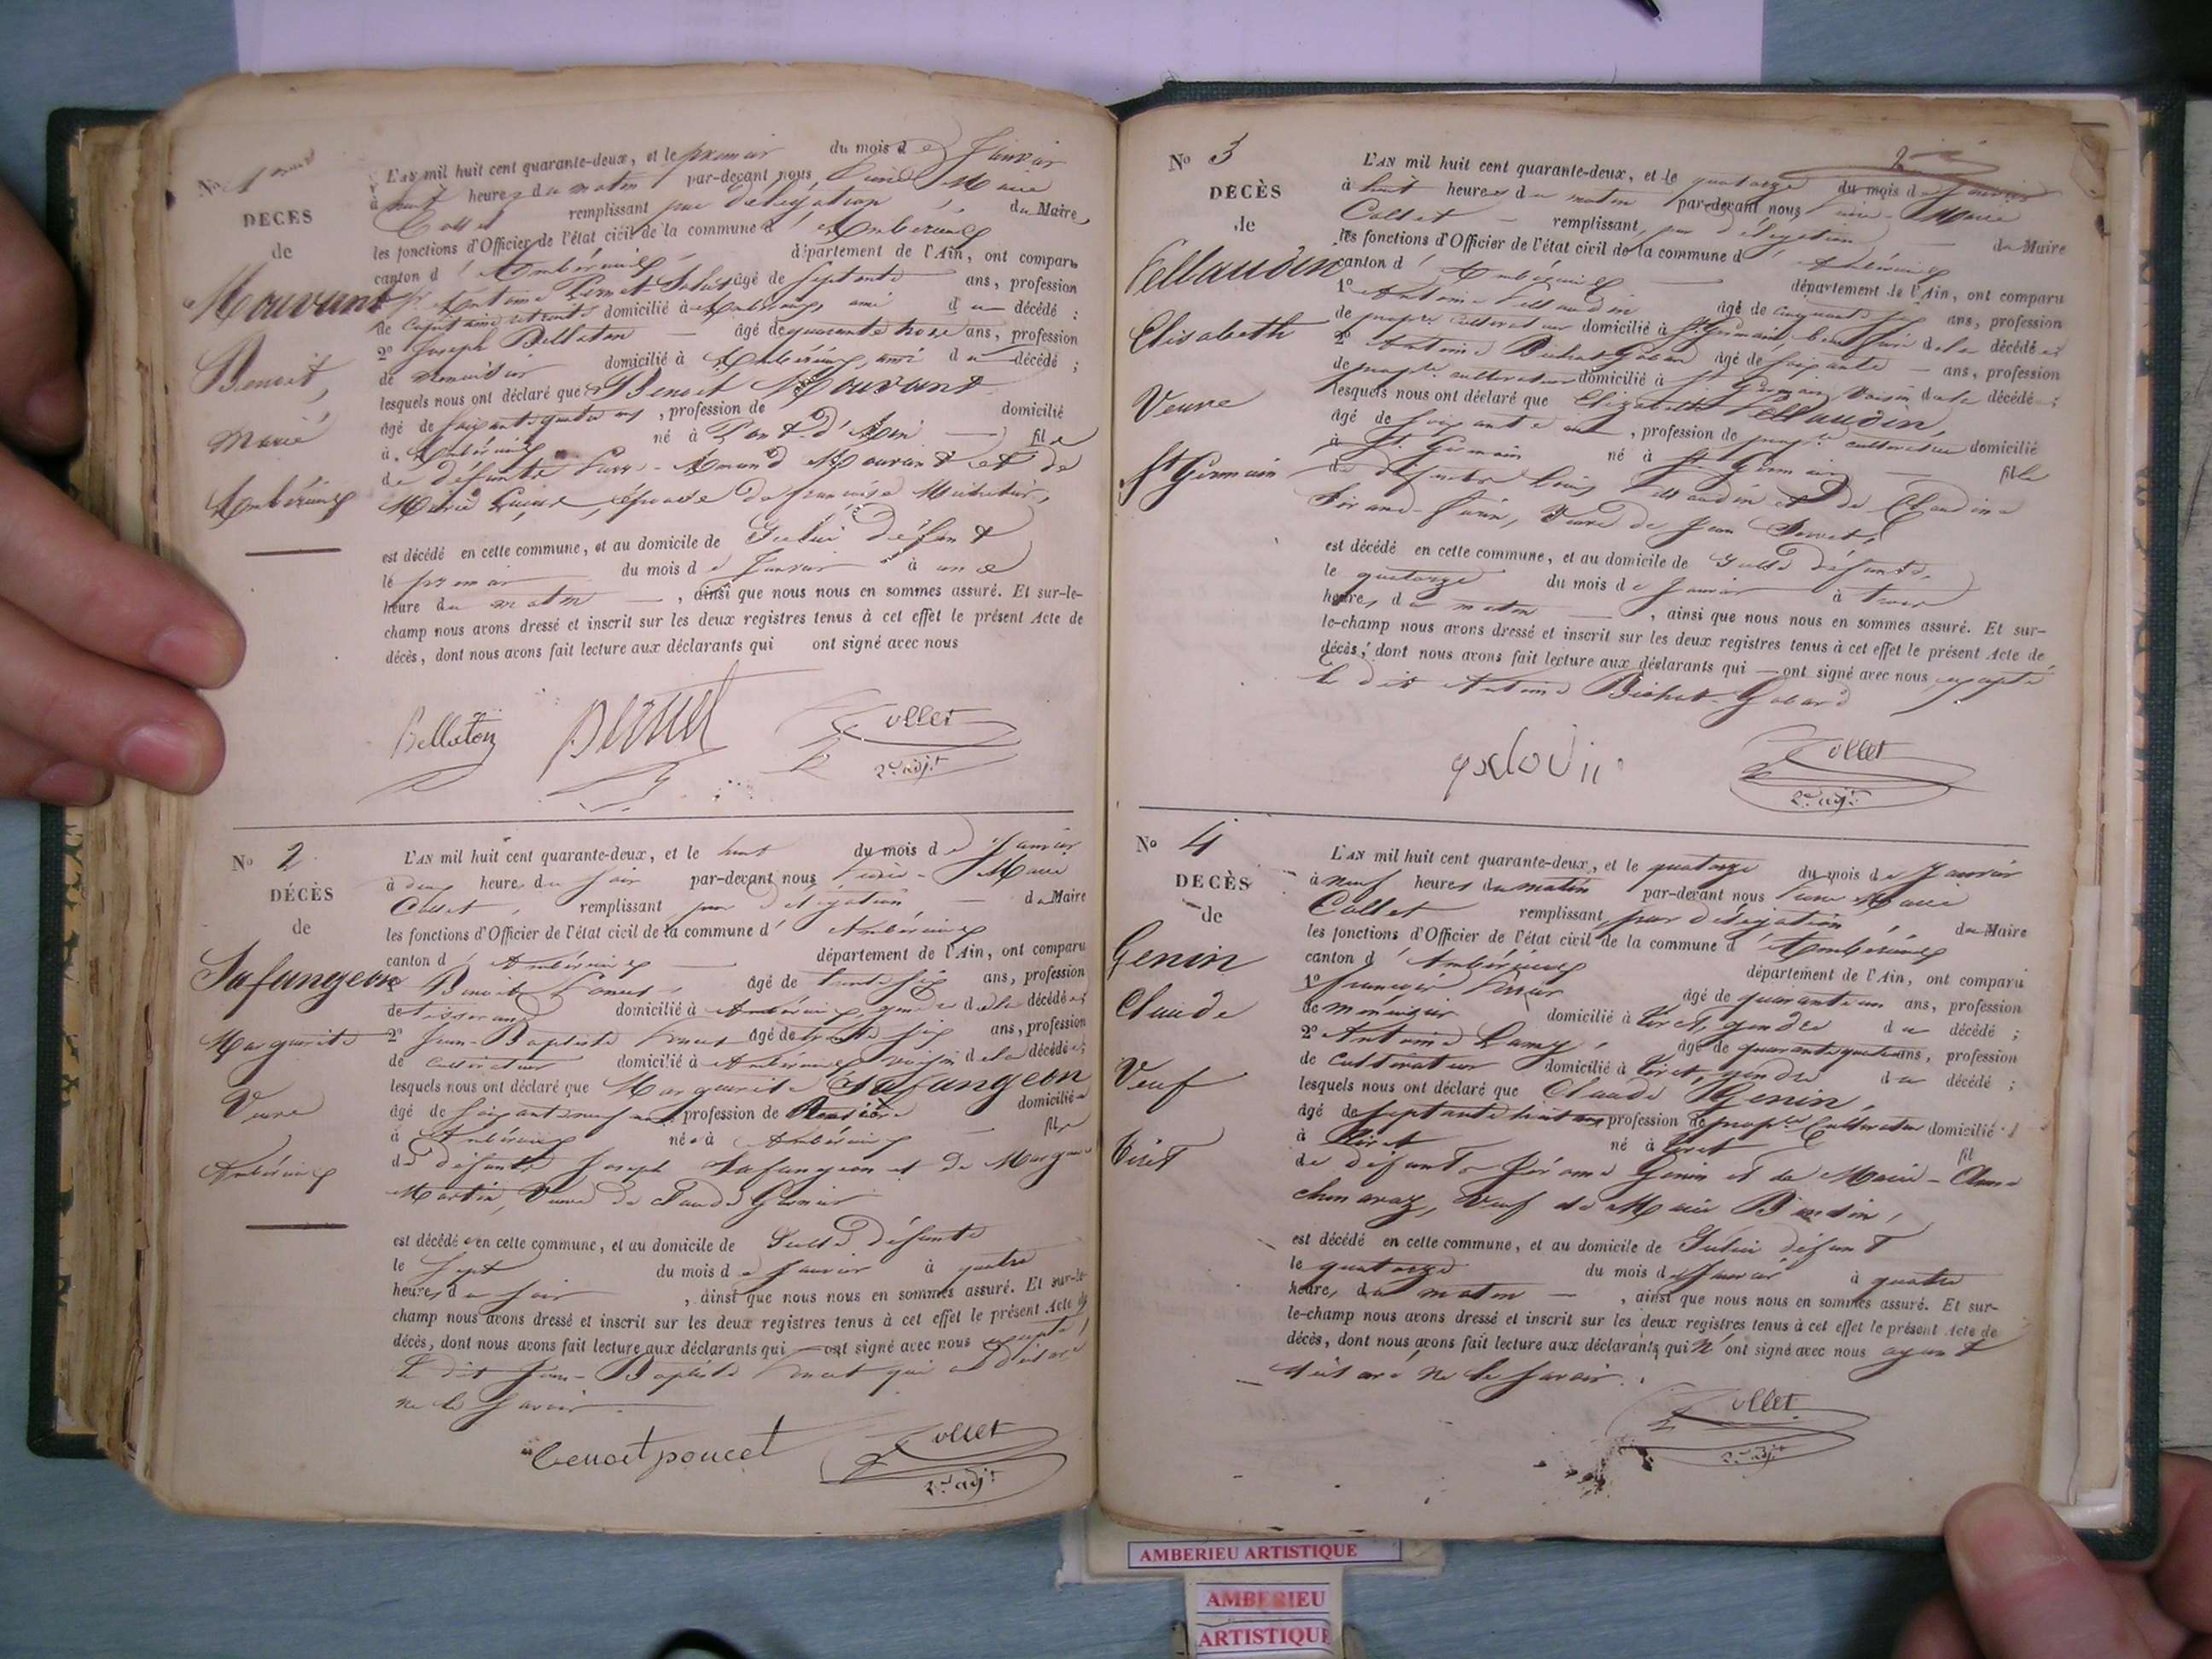 N° 1
DÉCÈS
de
Mouvant
Benoit,
Marié
Ambérieux
L'AN mil huit cent quarante-deux, et le premier du mois de Janvier
à huit heures du matin par-devant nous Marie
Collet remplissant par délégation du Maire,
les fonctions d'Officier de l'état civil de la commune d' Ambérieux
canton d' Ambérieux département de l'Ain, ont comparu
Antoine Pernet âgé de septante ans, profession
de capitaine retraité domicilié à Ambérieux, ami du décédé ;
2° Joseph Bellaton âgé de quarante trois ans, profession
de menuisier domicilié à Ambérieux, ami du décédé ;
lesquels nous ont déclaré que Benoit Mouvant
âgé de soixante quatre ans, profession de domicilié
à Ambérieux né à Pont-d'Ain fils
de défunts Amand Mouvant et de
Marie épouse de françoise
est décédé en cette commune, et au domicile de Icelui défunt
le premier du mois de Janvier à une
heure du matin , ainsi que nous nous en sommes assuré. Et sur-le-
champ nous avons dressé et inscrit sur les deux registres tenus à cet effet le présent Acte de
décès, dont nous avons fait lecture aux déclarants qui ont signé avec nous
Bellaton Pernet Collet
2e adjt
N° 2
DÉCÈS
de
Lafangeon
Marguerite
Veuve
Ambérieux
L'AN mil huit cent quarante-deux, et le huit du mois de Janvier
à deux heures du soir par-devant nous Marie
Collet, remplissant par délégation du Maire
les fonctions d'Officier de l'état civil de la commune d' Ambérieux
canton d' Ambérieux département de l'Ain, ont comparu
Benoit Poncet, âgé de trente six ans, profession
de tisserand domicilié à Ambérieux, gendre de la décédée ;
2° Jean-Baptiste Poncet âgé de trente six ans, profession
de cultivateur domicilié à Ambérieux, voisin de la décédée ;
lesquels nous ont déclaré que Marguerite Lafangeon
âgé de soixante neuf ans, profession de Rentière domiciliée
à Ambérieux née à Ambérieux fille
de défunts Joseph Lafangeon et de
Martin, Veuve de Claude
est décédée en cette commune, et au domicile de Icelle défunte
le sept du mois de Janvier à quatre
heures du soir , ainsi que nous nous en sommes assuré. Et sur-le-
champ nous avons dressé et inscrit sur les deux registres tenus à cet effet le présent Acte de
décès, dont nous avons fait lecture aux déclarants qui ont signé avec nous excepté
le dit Jean-Baptiste Poncet qui a déclaré
ne le savoir
benoit poncet Collet
2e adjt
2
N° 3
DÉCÈS
de
Tellaudin
Elisabeth
Veuve
St Germain
L'AN mil huit cent quarante-deux, et le quatorze du mois de Janvier
à huit heures du matin par-devant nous Marie
Collet remplissant par délégation du Maire
les fonctions d'Officier de l'état civil de la commune d' Ambérieux
canton d' Ambérieux département de l'Ain, ont comparu
1° Antoine Tellaudin âgé de cinquante ans, profession
de propre cultivateur domicilié à St Germain, frère de la décédée ;
2° Antoine Bichat Gobard âgé de soixante ans, profession
de propre cultivateur domicilié à St Germain Voisin de la décédée ;
lesquels nous ont déclaré que Elizabeth Tellaudin,
âgé de soixante ans, profession de propre cultivateur domicilié
à St Germain né à St Germain fille
de défunts Louis Tellaudin et de Claudine
Veuve de Jean
est décédé en cette commune, et au domicile de Icelle défunte,
le quatorze du mois de Janvier à trois
heures du matin , ainsi que nous nous en sommes assuré. Et sur-
le-champ nous avons dressé et inscrit sur les deux registres tenus à cet effet le présent Acte de
décès, dont nous avons fait lecture aux déclarants qui ont signé avec nous excepté
le dit Antoine Bichat-Gobard
Collet
2e adjt
N° 4
DÉCÈS
de
Genin
Claude
Veuf
Tiret
L'AN mil huit cent quarante-deux, et le quatorze du mois de Janvier
à neuf heures du matin par-devant nous Marie
Collet remplissant par délégation du Maire
les fonctions d'Officier de l'état civil de la commune d' Ambérieux
canton d' Ambérieux département de l'Ain, ont comparu
1° françois âgé de quarante un ans, profession
de menuisier domicilié à Tiret, gendre du décédé ;
2° Antoine Lamy, âgé de quarante quatre ans, profession
de cultivateur domicilié à Tiret, gendre du décédé ;
lesquels nous ont déclaré que Claude Genin,
âgé de septante huit ans profession de propre Cultivateur domicilié
à Tiret né à Tiret fil
de défunts Jérome Genin et de Marie-Anne
veuf de Marie Bindin,
est décédé en cette commune, et au domicile de Icelui défunt
le quatorze du mois de Janvier à quatre
heures du matin , ainsi que nous nous en sommes assuré. Et sur-
le-champ nous avons dressé et inscrit sur les deux registres tenus à cet effet le présent Acte de
décès, dont nous avons fait lecture aux déclarants qui n'ont signé avec nous ayant
déclaré ne le savoir.
Collet
2e adjt
AMBERIEU ARTISTIQUE
AMBERIEU
ARTISTIQUE